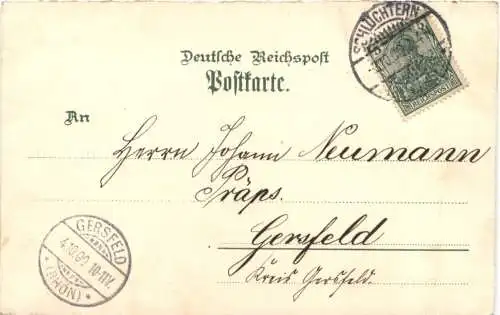 Deutsche Reichspost
Postkarte.
SCHLÜCHTERN
REICHSPOST
An
Herrn Johann Neumann
Präps.
Gersfeld
Kreis Gersfeld.
GERSFELD
4.10.99. 10-11V.
* (RHÖN) *